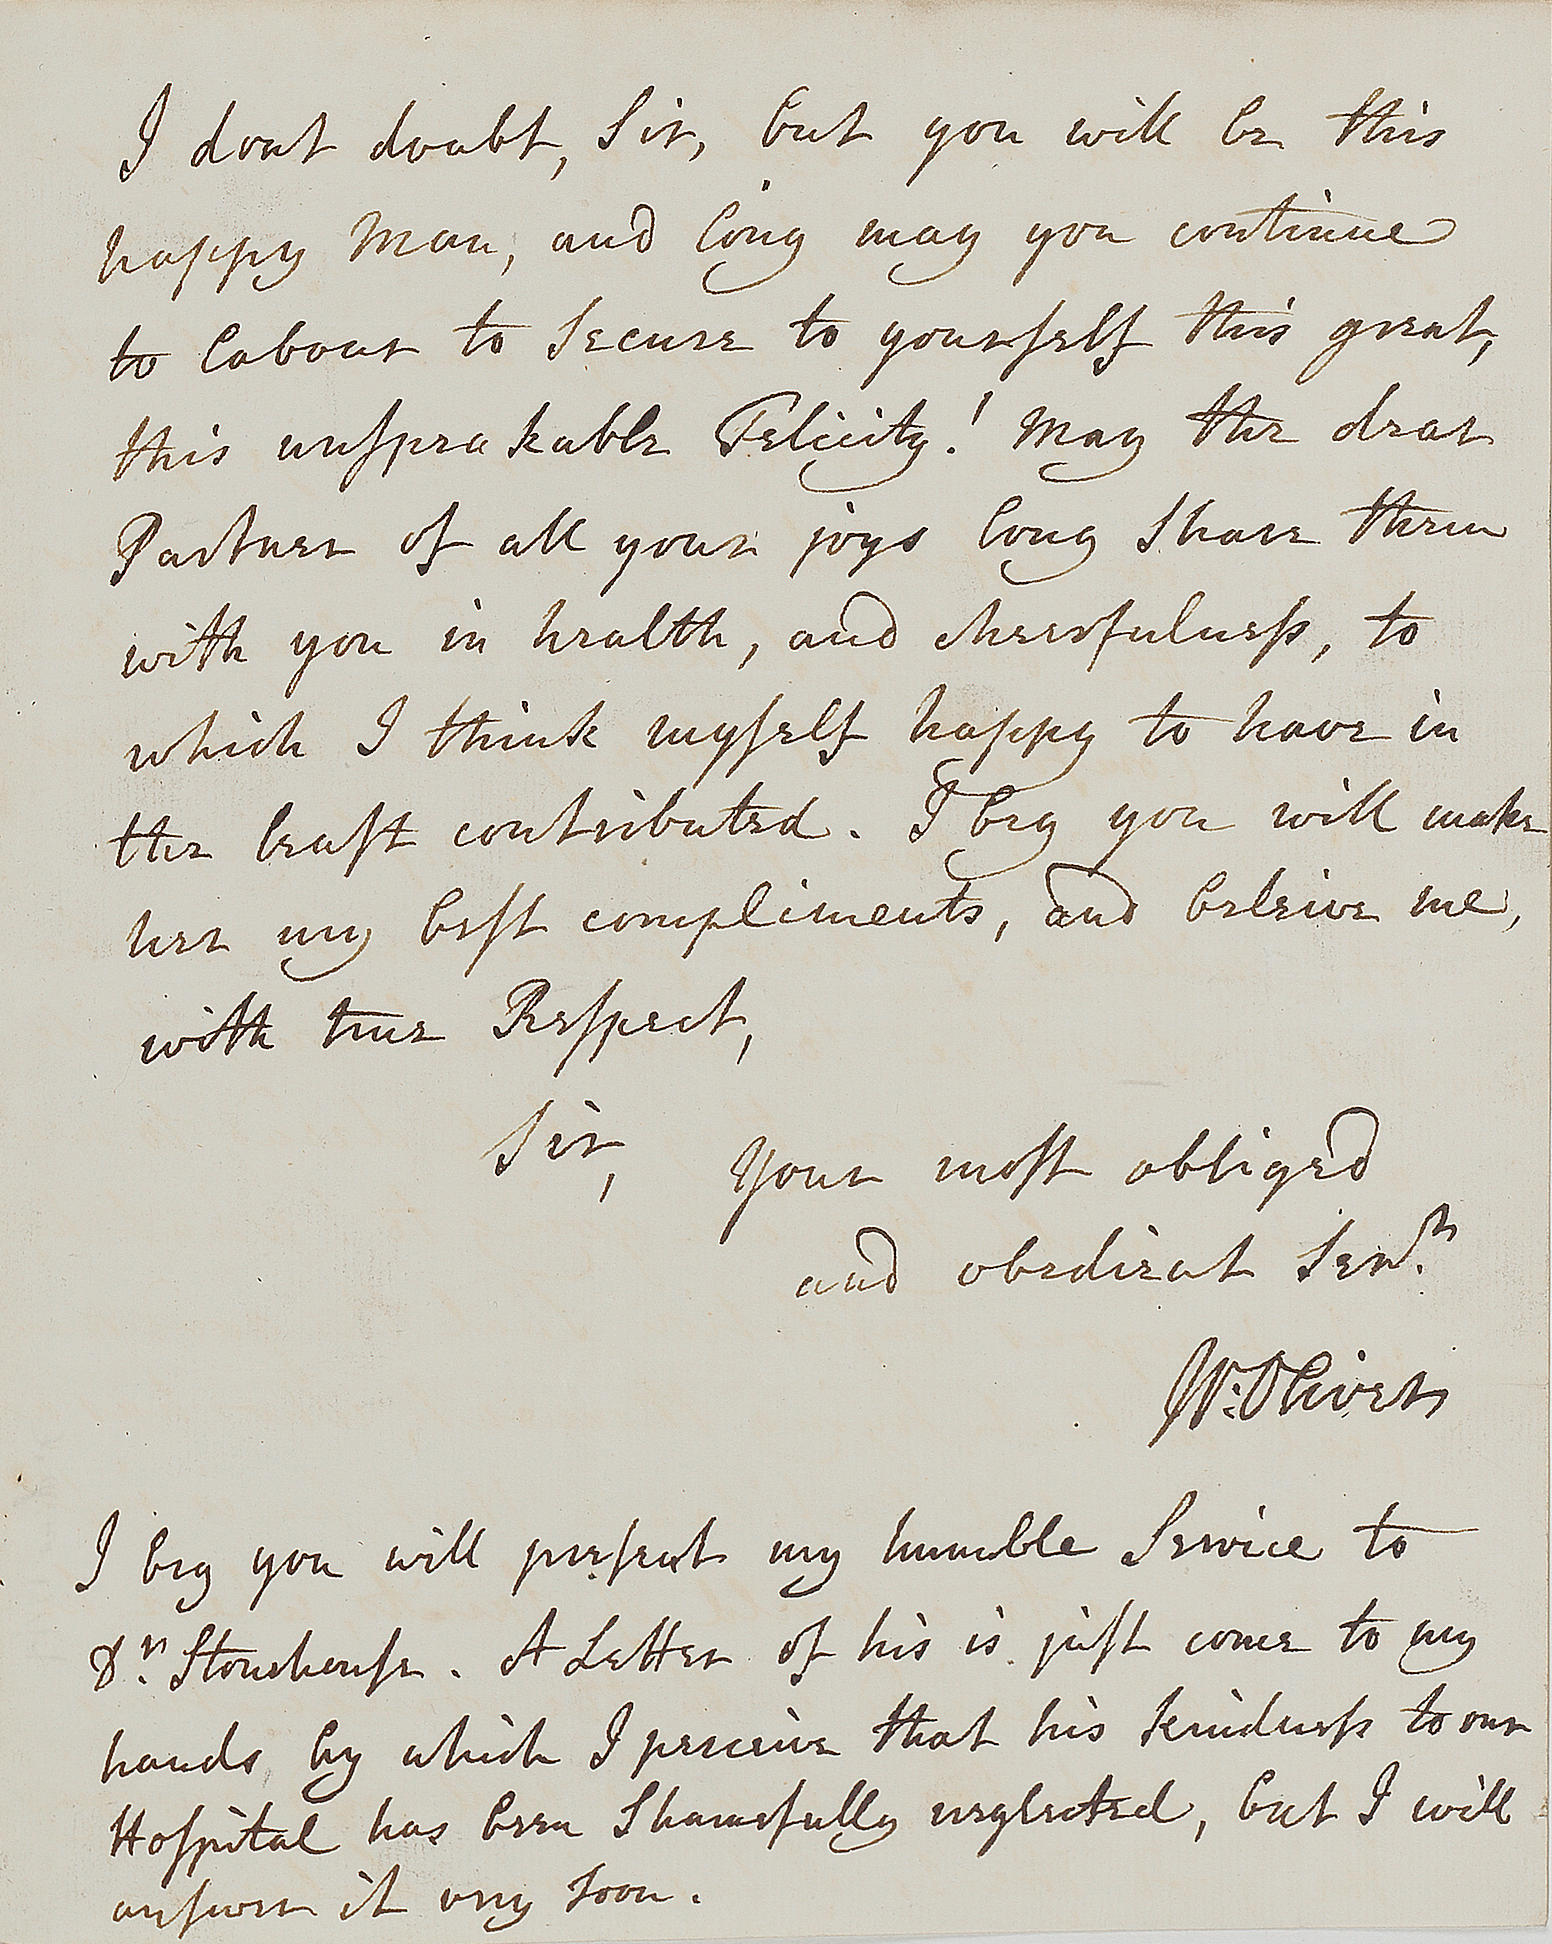 I dont doubt, Sir, but you will be this
happy Man, and long may you continue
to labour to secure to yourself this great,
this unspeakable Felicity! May the dear
Partner of all your joys long share them
with you in health, and cheerfulness, to
which I think myself happy to have in
the least contributed. I beg you will make
her my best compliments, and beleive me,
with true Respect,
Sir, Your most obliged
and obedient Serv.ᵗ
W: Oliver
I beg you will present my humble Service to
Dʳ. Stonehouse. A Letter of his is just come to my
hands by which I perceive that his kindness to our
Hospital has been shamefully neglected, but I will
answer it very soon.